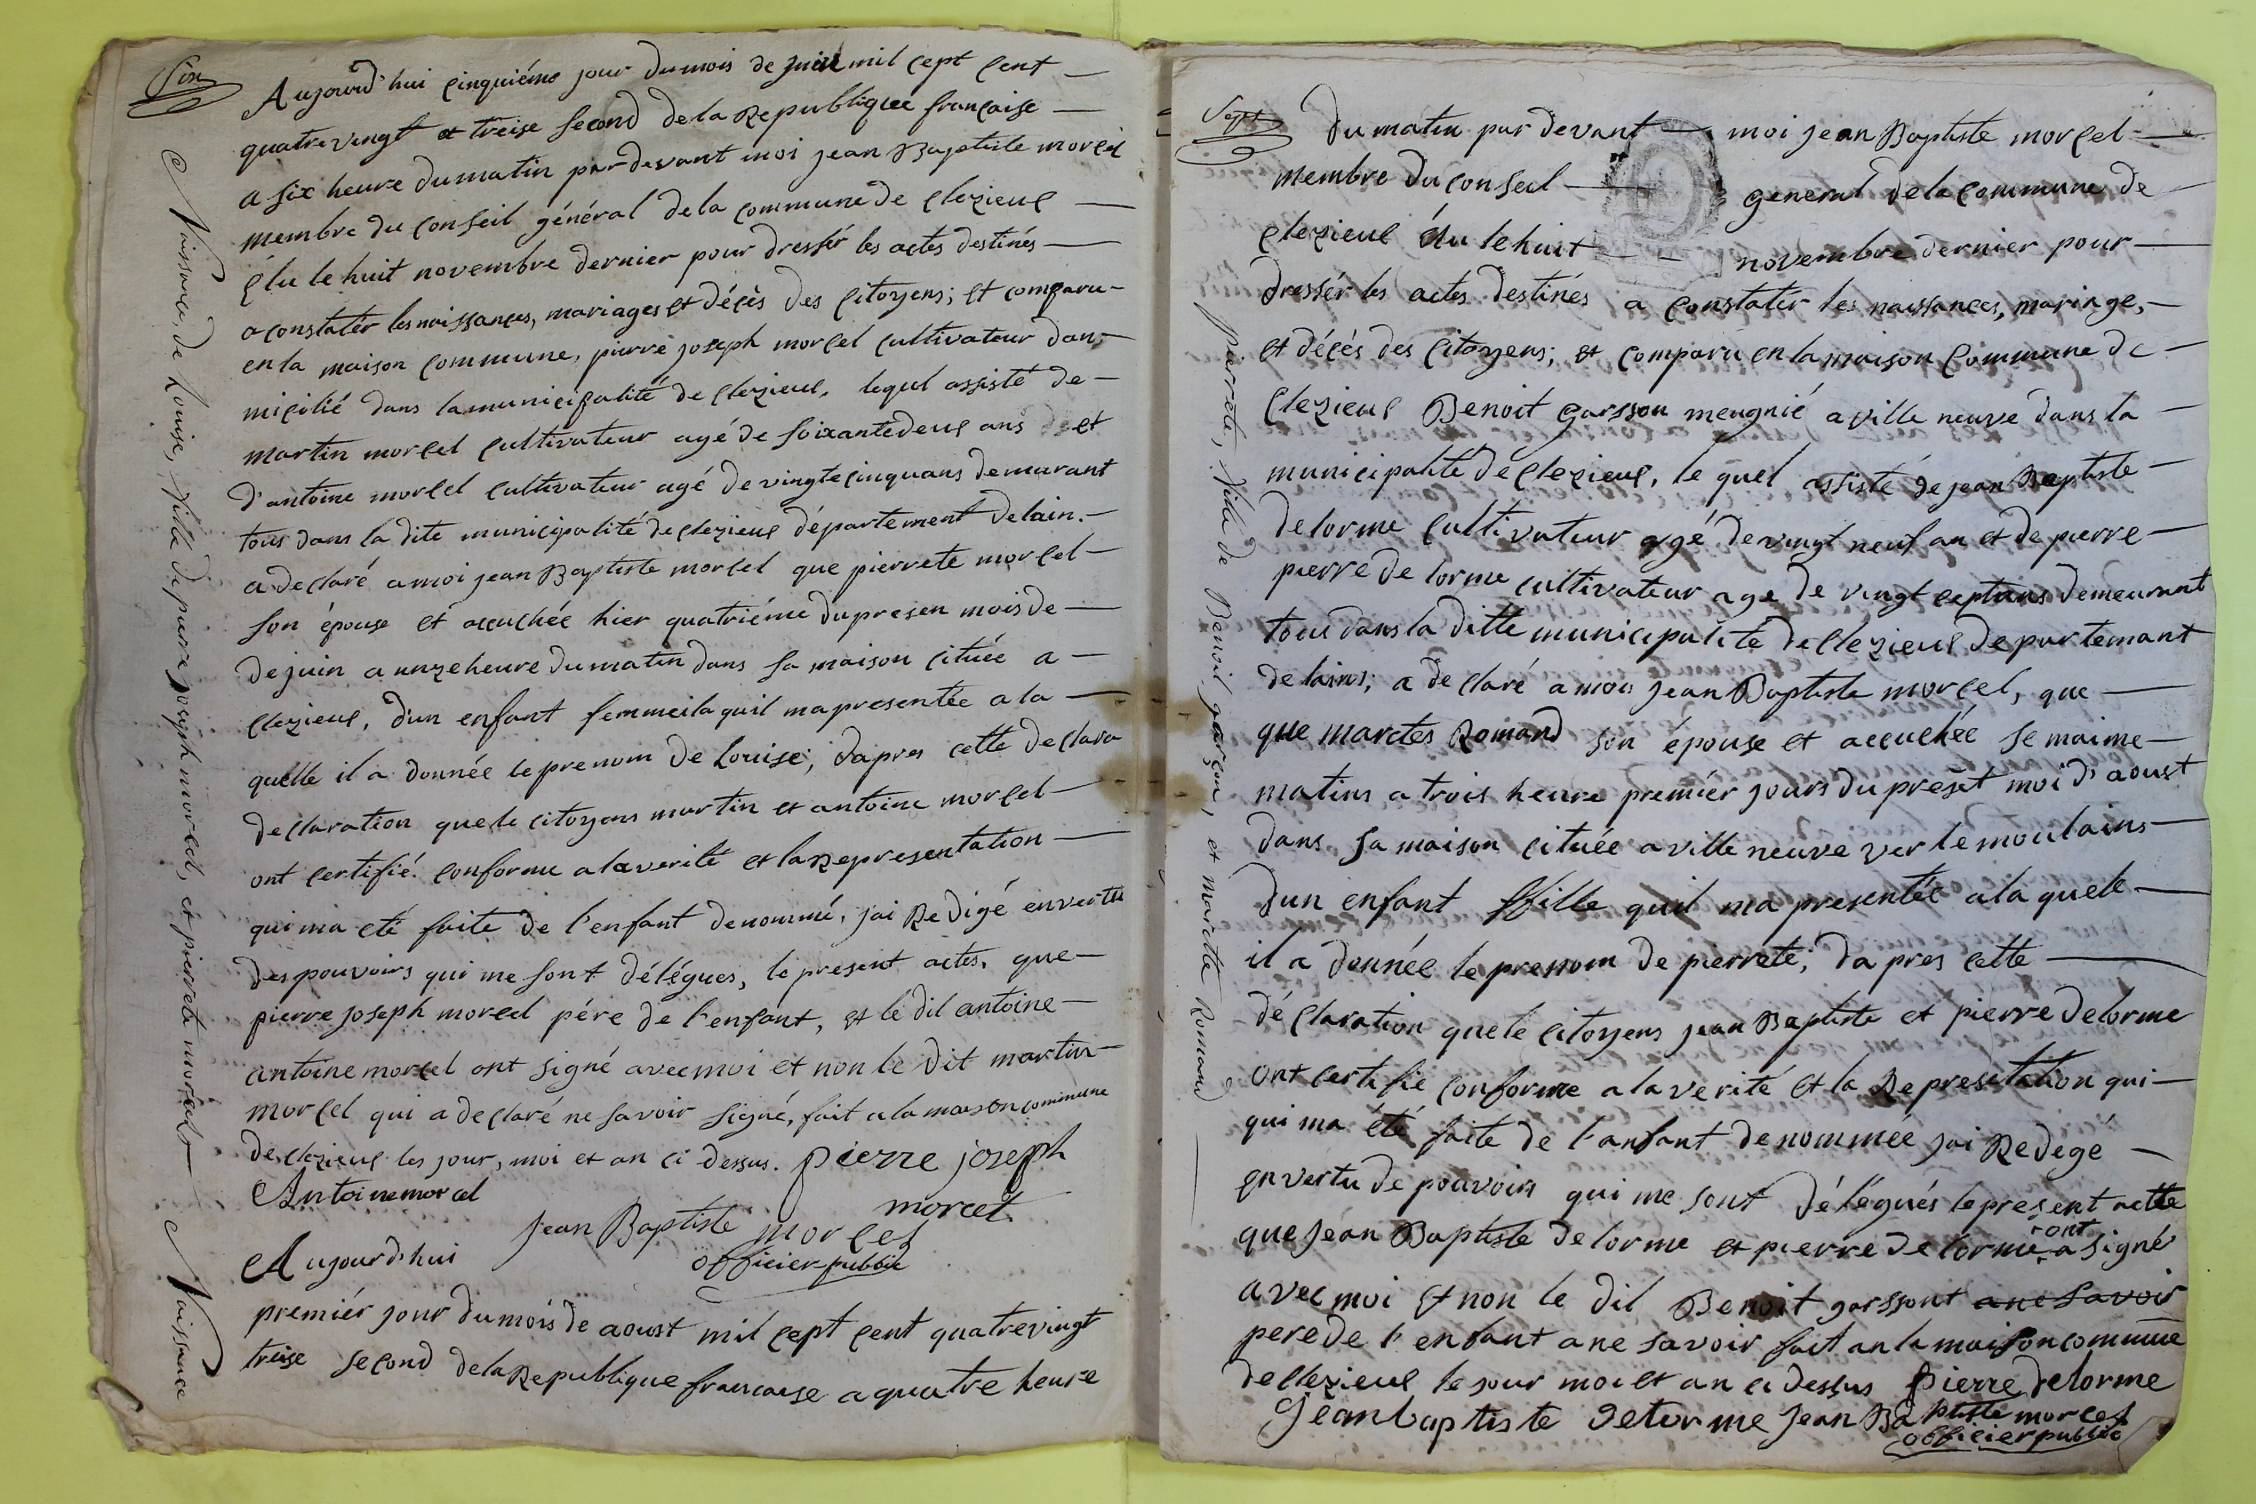 Six
Aujourd'hui cinquiéme jour du mois de juin mil cept cent
quatrevingt et treise second de la Republique françaice
a six heure du matin pardevant moi jean Baptiste morcel
membre du conseil général de la commune de clezieus
élu le huit novembre dernier pour dressér les actes destinés
a constatér les naissances, mariages et décès des citoyens; et comparu
en la maison commune, pierre joseph morcel cultivateur dom-
micilié dans la municipalité de clezieus, lequel assisté de
martin morcel cultivateur agé de soixantedeus ans et
d'antoine morcel cultivateur agé de vingtecinquans demurant
tous dans la dite municipalité de clezieus département delain.
a declaré a moi jean Baptiste morcel que pierrete morcel
son épouse et accuchée hier quatriéme du presen mois de
de juin a unze heure du matin dans sa maison cituée a
clezieus, d'un enfant femmeila quil ma presentée a la
quelle il a donnée le prenom de Louise; dapres cette declara
declaration que le citoyens martin et antoine morcel
ont certifié conforme a la verité et la Representation
qui ma eté faite de l'enfant denommé, jai Redigé en vertu
des pouvoirs qui me sont délégues, le present actes, que
pierre joseph morcel pére de l'enfant, et le dit antoine
antoine morcel ont signé avec moi et non le dit martin
morcel qui a declaré ne savoir signé, fait a la maison commune
de clezieus les jour, moi et an ci dessus. pierre joseph
morcel
Antoine morcel
jean Baptiste morcel
officier public
Aujourd'hui
premiér jour du mois de aoust mil cept cent quatrevingt
treise second de la Republique francaise a quatre heure
Naissance, de Louise, fille de pierre joseph morcel, et pierrete morcel
Naissance
Sept
du matin par devant moi jean Baptiste morcel
membre du conseil general de la commune de
clezieus élu le huit novembre dernier pour
dressér les actes destinés a constatér les naissances, mariage,
et décés des citoyens; et comparu en la maison commune de
clezieus Benoit garsson meugnié a ville neuve dans la
municipalité de clezieus, le quel assisté de jean Baptiste
delorme cultivateur agé de vingt neuf an et de pierre
pierre de lorme cultivateur age de vingt ceptans demeurant
tou dans la ditte municipalité de clezieus departemant
de lains; a declaré a moi jean Baptiste morcel, que
que marctes Romand son épouse et accuchée se maime
matins a trois heure premiér jours du preset moi d'aoust
dans sa maison cituée a ville neuve ver le moulains
dun enfant fille quil ma presentée a la quele
il a donnée le prenom de pierrete; da pres cette
déclaration que le citoyens jean Baptiste et pierre delorme
ont certifie conforme a la verité et la Represetation qui
qui ma été faite de l'anfant denommée jai Redegé
en vertu de pouvoirs qui me sont délégués le present actte
que jean Baptiste delorme et pierre de lorme ont a signé
avec moi et non le dit Benoit garssont a ne savoir
pere de l'enfant a ne savoir fait an la maison commune
de clezieus le jour moi et an ci dessus pierre delorme
jeanbaptiste delorme jean Baptiste morcel
officier public
pierrete, fille de Benoit garçon, et marcette Romand